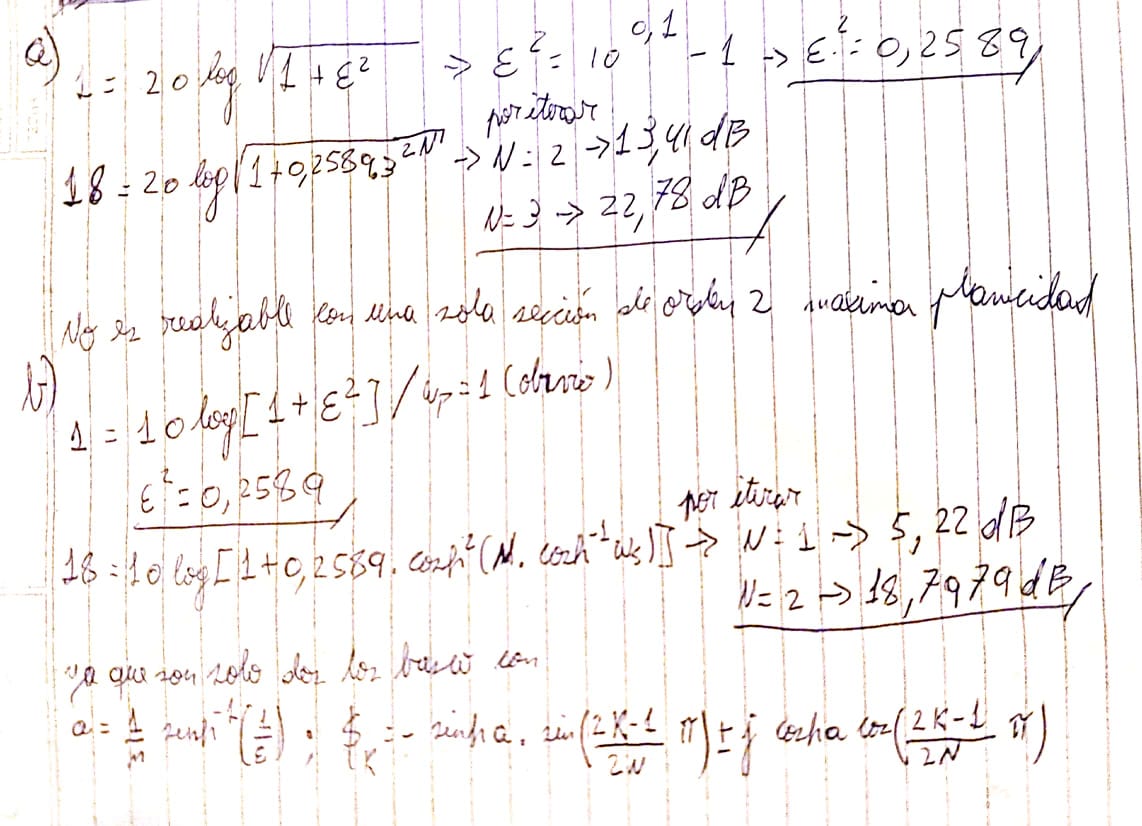 a) 1 = 20 log √(1 + ε²) ⇒ ε² = 10^0,1 - 1 → ε² = 0,2589
por iterar
18 = 20 log √(1+0,2589.3^2N) → N = 2 → 13,41 dB
N = 3 → 22,78 dB
No es realizable con una sola sección de orden 2 maxima planicidad
b)
1 = 10 log [1 + ε²] / ωp = 1 (obvio)
ε² = 0,2589
por iterar
18 = 10 log [1+0,2589. cosh² (N. cosh⁻¹ ωs)] → N = 1 → 5,22 dB
N = 2 → 18,7979 dB
ya que son solo dos los busco con
a = 1/n senh⁻¹ (1/ε) ; $K = - sinh a. sin (2K-1/2N π) ± j cosh a cos (2K-1/2N π)